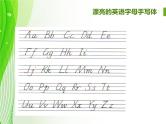 漂亮的英语字母手写体
Aa Bb Cc Dd
Ee Ff Gg Hh
Ii Jj Kk Ll
Mm Nn Oo Pp
Qq Rr Ss Tt
Uu Vv Ww Xx
Yy Zz